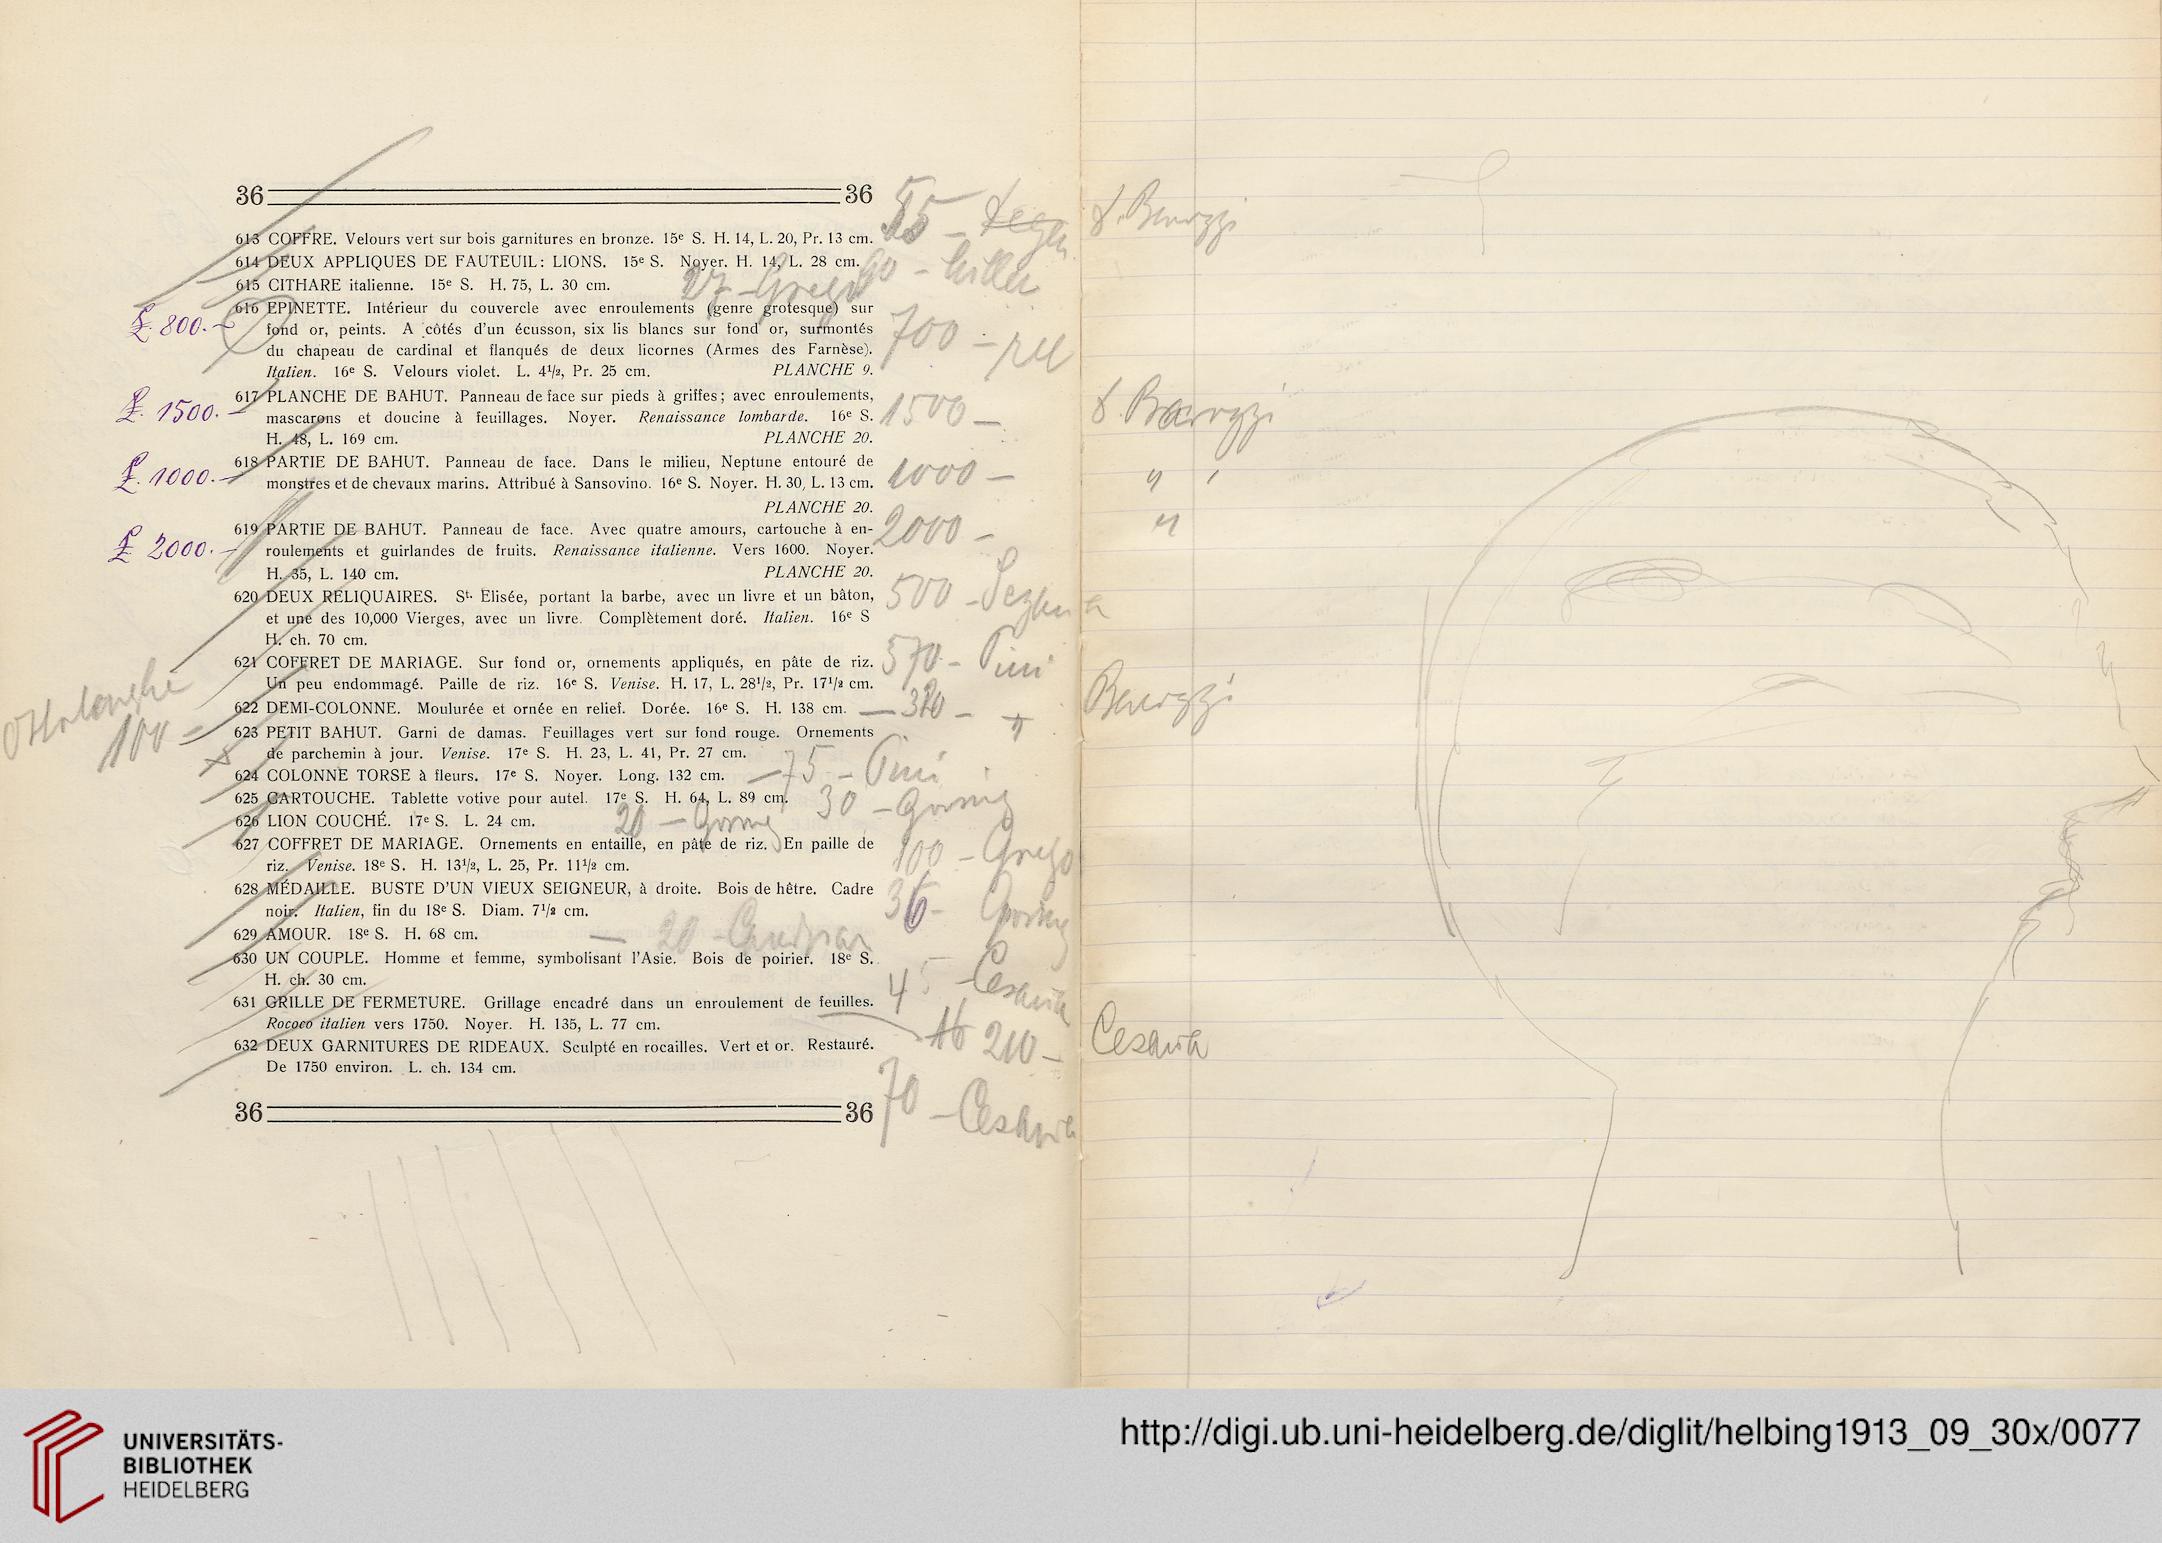 36 36
613 COFFRE. Velours vert sur bois garnitures en bronze. 15e S. H. 14, L. 20, Pr. 13 cm.
85 –
614 DEUX APPLIQUES DE FAUTEUIL: LIONS. 15e S. Noyer. H. 14, L. 28 cm.
90 –
615 CITHARE italienne. 15e S. H. 75, L. 30 cm.
27 – Grego
£. 800. –
616 EPINETTE. Intérieur du couvercle avec enroulements (genre grotesque) sur
fond or, peints. A côtés d'un écusson, six lis blancs sur fond or, surmontés
du chapeau de cardinal et flanqués de deux licornes (Armes des Farnèse).
Italien. 16e S. Velours violet. L. 4¹/₂, Pr. 25 cm. PLANCHE 9.
700 –
£. 1500. –
617 PLANCHE DE BAHUT. Panneau de face sur pieds à griffes; avec enroulements,
mascarons et doucine à feuillages. Noyer. Renaissance lombarde. 16e S.
H. 48, L. 169 cm. PLANCHE 20.
1500 –
£. 1000. –
618 PARTIE DE BAHUT. Panneau de face. Dans le milieu, Neptune entouré de
monstres et de chevaux marins. Attribué à Sansovino. 16e S. Noyer. H. 30, L. 13 cm.
PLANCHE 20.
1000 – " "
£ 2000. –
619 PARTIE DE BAHUT. Panneau de face. Avec quatre amours, cartouche à en-
roulements et guirlandes de fruits. Renaissance italienne. Vers 1600. Noyer.
H. 35, L. 140 cm. PLANCHE 20.
2000 – "
620 DEUX RELIQUAIRES. St. Elisée, portant la barbe, avec un livre et un bâton,
et une des 10,000 Vierges, avec un livre. Complètement doré. Italien. 16e S
H. ch. 70 cm.
500 –
621 COFFRET DE MARIAGE. Sur fond or, ornements appliqués, en pâte de riz.
Un peu endommagé. Paille de riz. 16e S. Venise. H. 17, L. 28¹/₂, Pr. 17¹/₂ cm.
570 – Pini
622 DEMI-COLONNE. Moulurée et ornée en relief. Dorée. 16e S. H. 138 cm.
– 320 – "
100 –
623 PETIT BAHUT. Garni de damas. Feuillages vert sur fond rouge. Ornements
de parchemin à jour. Venise. 17e S. H. 23, L. 41, Pr. 27 cm.
624 COLONNE TORSE à fleurs. 17e S. Noyer. Long. 132 cm.
– 75 – Pini
625 CARTOUCHE. Tablette votive pour autel. 17e S. H. 64, L. 89 cm.
30 –
626 LION COUCHÉ. 17e S. L. 24 cm.
20 –
627 COFFRET DE MARIAGE. Ornements en entaille, en pâte de riz. En paille de
riz. Venise. 18e S. H. 13¹/₂, L. 25, Pr. 11¹/₂ cm.
100 – Grego
628 MÉDAILLE. BUSTE D'UN VIEUX SEIGNEUR, à droite. Bois de hêtre. Cadre
noir. Italien, fin du 18e S. Diam. 7¹/₂ cm.
36 –
629 AMOUR. 18e S. H. 68 cm.
– 20 –
630 UN COUPLE. Homme et femme, symbolisant l'Asie. Bois de poirier. 18e S.
H. ch. 30 cm.
45 –
631 GRILLE DE FERMETURE. Grillage encadré dans un enroulement de feuilles.
Rococo italien vers 1750. Noyer. H. 135, L. 77 cm.
210 –
632 DEUX GARNITURES DE RIDEAUX. Sculpté en rocailles. Vert et or. Restauré.
De 1750 environ. L. ch. 134 cm.
70 –
36 36
UNIVERSITÄTS-
BIBLIOTHEK
HEIDELBERG
http://digi.ub.uni-heidelberg.de/diglit/helbing1913_09_30x/0077